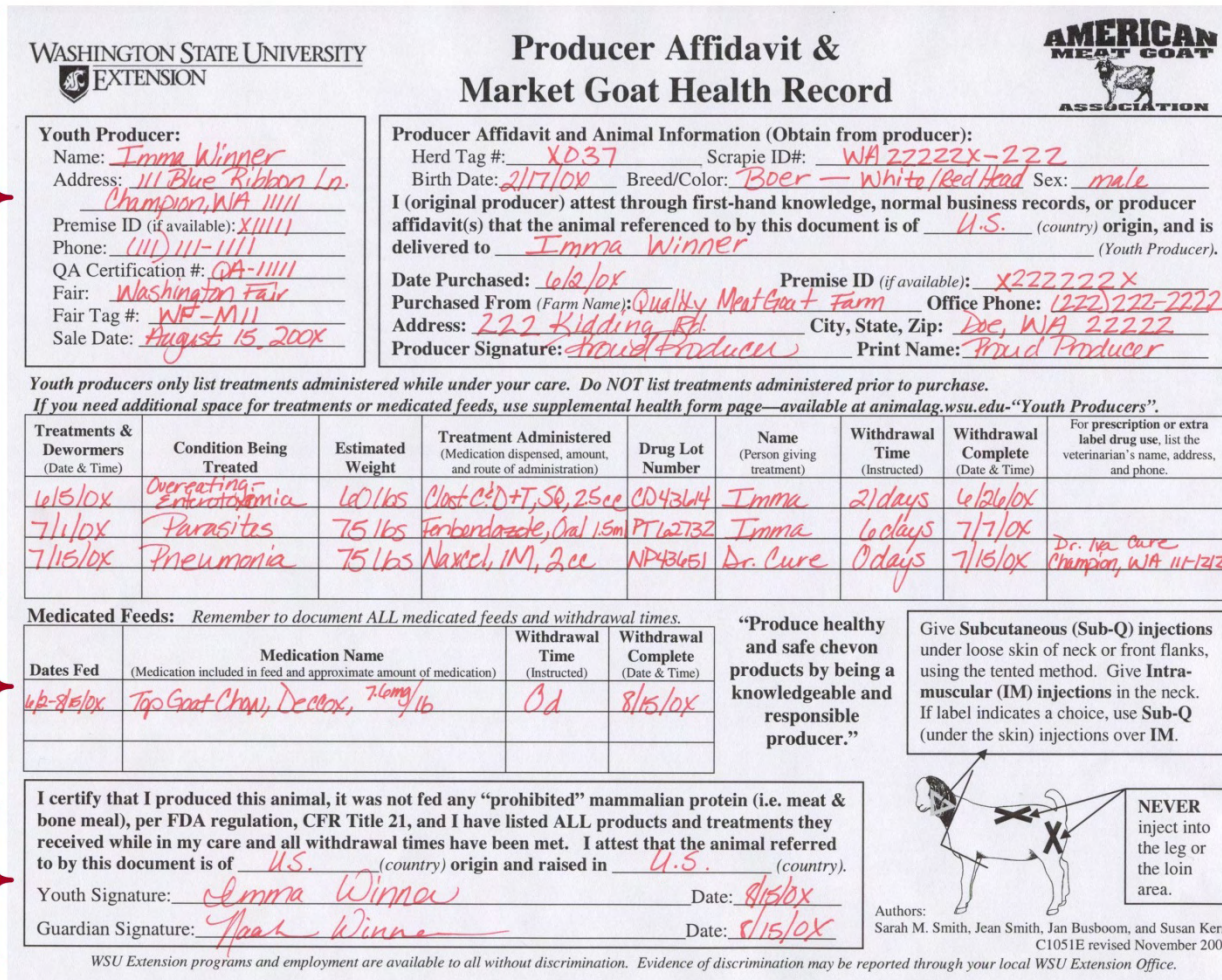 WASHINGTON STATE UNIVERSITY
EXTENSION
Producer Affidavit &
Market Goat Health Record
AMERICAN
MEAT GOAT
ASSOCIATION
Youth Producer:
Name: Imma Winner
Address: 111 Blue Ribbon Ln.
Champion, WA 11111
Premise ID (if available): X11111
Phone: (111) 111-1111
QA Certification #: QA-11111
Fair: Washington Fair
Fair Tag #: WF-M11
Sale Date: August 15, 200X
Producer Affidavit and Animal Information (Obtain from producer):
Herd Tag #: X037 Scrapie ID#: WA 22222X-222
Birth Date: 2/17/0X Breed/Color: Boer — White/Red Head Sex: male
I (original producer) attest through first-hand knowledge, normal business records, or producer
affidavit(s) that the animal referenced to by this document is of U.S. (country) origin, and is
delivered to Imma Winner (Youth Producer).
Date Purchased: 6/2/0X Premise ID (if available): X222222X
Purchased From (Farm Name): Quality Meat Goat Farm Office Phone: (222) 222-2222
Address: 222 Kidding Rd. City, State, Zip: Doe, WA 22222
Producer Signature: Proud Producer Print Name: Proud Producer
Youth producers only list treatments administered while under your care. Do NOT list treatments administered prior to purchase.
If you need additional space for treatments or medicated feeds, use supplemental health form page—available at animalag.wsu.edu-“Youth Producers”.
Treatments & Dewormers (Date & Time) Condition Being Treated Estimated Weight Treatment Administered (Medication dispensed, amount, and route of administration) Drug Lot Number Name (Person giving treatment) Withdrawal Time (Instructed) Withdrawal Complete (Date & Time) For prescription or extra label drug use, list the veterinarian's name, address, and phone.
6/5/0X Overeating-Enterotoxemia 60 lbs Clost. C&D+T, SQ, 25cc CD43614 Imma 21 days 6/26/0X
7/1/0X Parasites 75 lbs Fenbendazole, Oral 1.5ml PT62732 Imma 6 days 7/7/0X
7/15/0X Pneumonia 75 lbs Naxcel, IM, 2cc NP43651 Dr. Cure 0 days 7/15/0X Dr. Iva Cure Champion, WA 111-1212
Medicated Feeds: Remember to document ALL medicated feeds and withdrawal times.
Dates Fed Medication Name (Medication included in feed and approximate amount of medication) Withdrawal Time (Instructed) Withdrawal Complete (Date & Time)
6/2-8/15/0X Top Goat Chow, Deccox, 7.6mg/lb 0d 8/15/0X
“Produce healthy
and safe chevon
products by being a
knowledgeable and
responsible
producer.”
Give Subcutaneous (Sub-Q) injections
under loose skin of neck or front flanks,
using the tented method. Give Intra-
muscular (IM) injections in the neck.
If label indicates a choice, use Sub-Q
(under the skin) injections over IM.
NEVER
inject into
the leg or
the loin
area.
I certify that I produced this animal, it was not fed any “prohibited” mammalian protein (i.e. meat &
bone meal), per FDA regulation, CFR Title 21, and I have listed ALL products and treatments they
received while in my care and all withdrawal times have been met. I attest that the animal referred
to by this document is of U.S. (country) origin and raised in U.S. (country).
Youth Signature: Imma Winner Date: 8/15/0X
Guardian Signature: Winner Date: 8/15/0X
Authors:
Sarah M. Smith, Jean Smith, Jan Busboom, and Susan Ker
C1051E revised November 200
WSU Extension programs and employment are available to all without discrimination. Evidence of discrimination may be reported through your local WSU Extension Office.